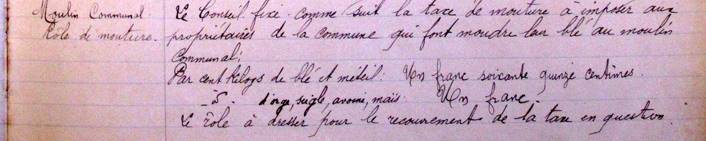 Moulin Communal
Rôle de mouture.
Le Conseil fixe comme suit la taxe de mouture à imposer aux
propriétaires de la commune qui font moudre leur blé au moulin
Communal;
Par cent kilogs de blé et méteil: Un franc soixante quinze centimes.
d'orge, seigle, avoine, maïs. Un franc.
Le rôle à dresser pour le recouvrement de la taxe en question